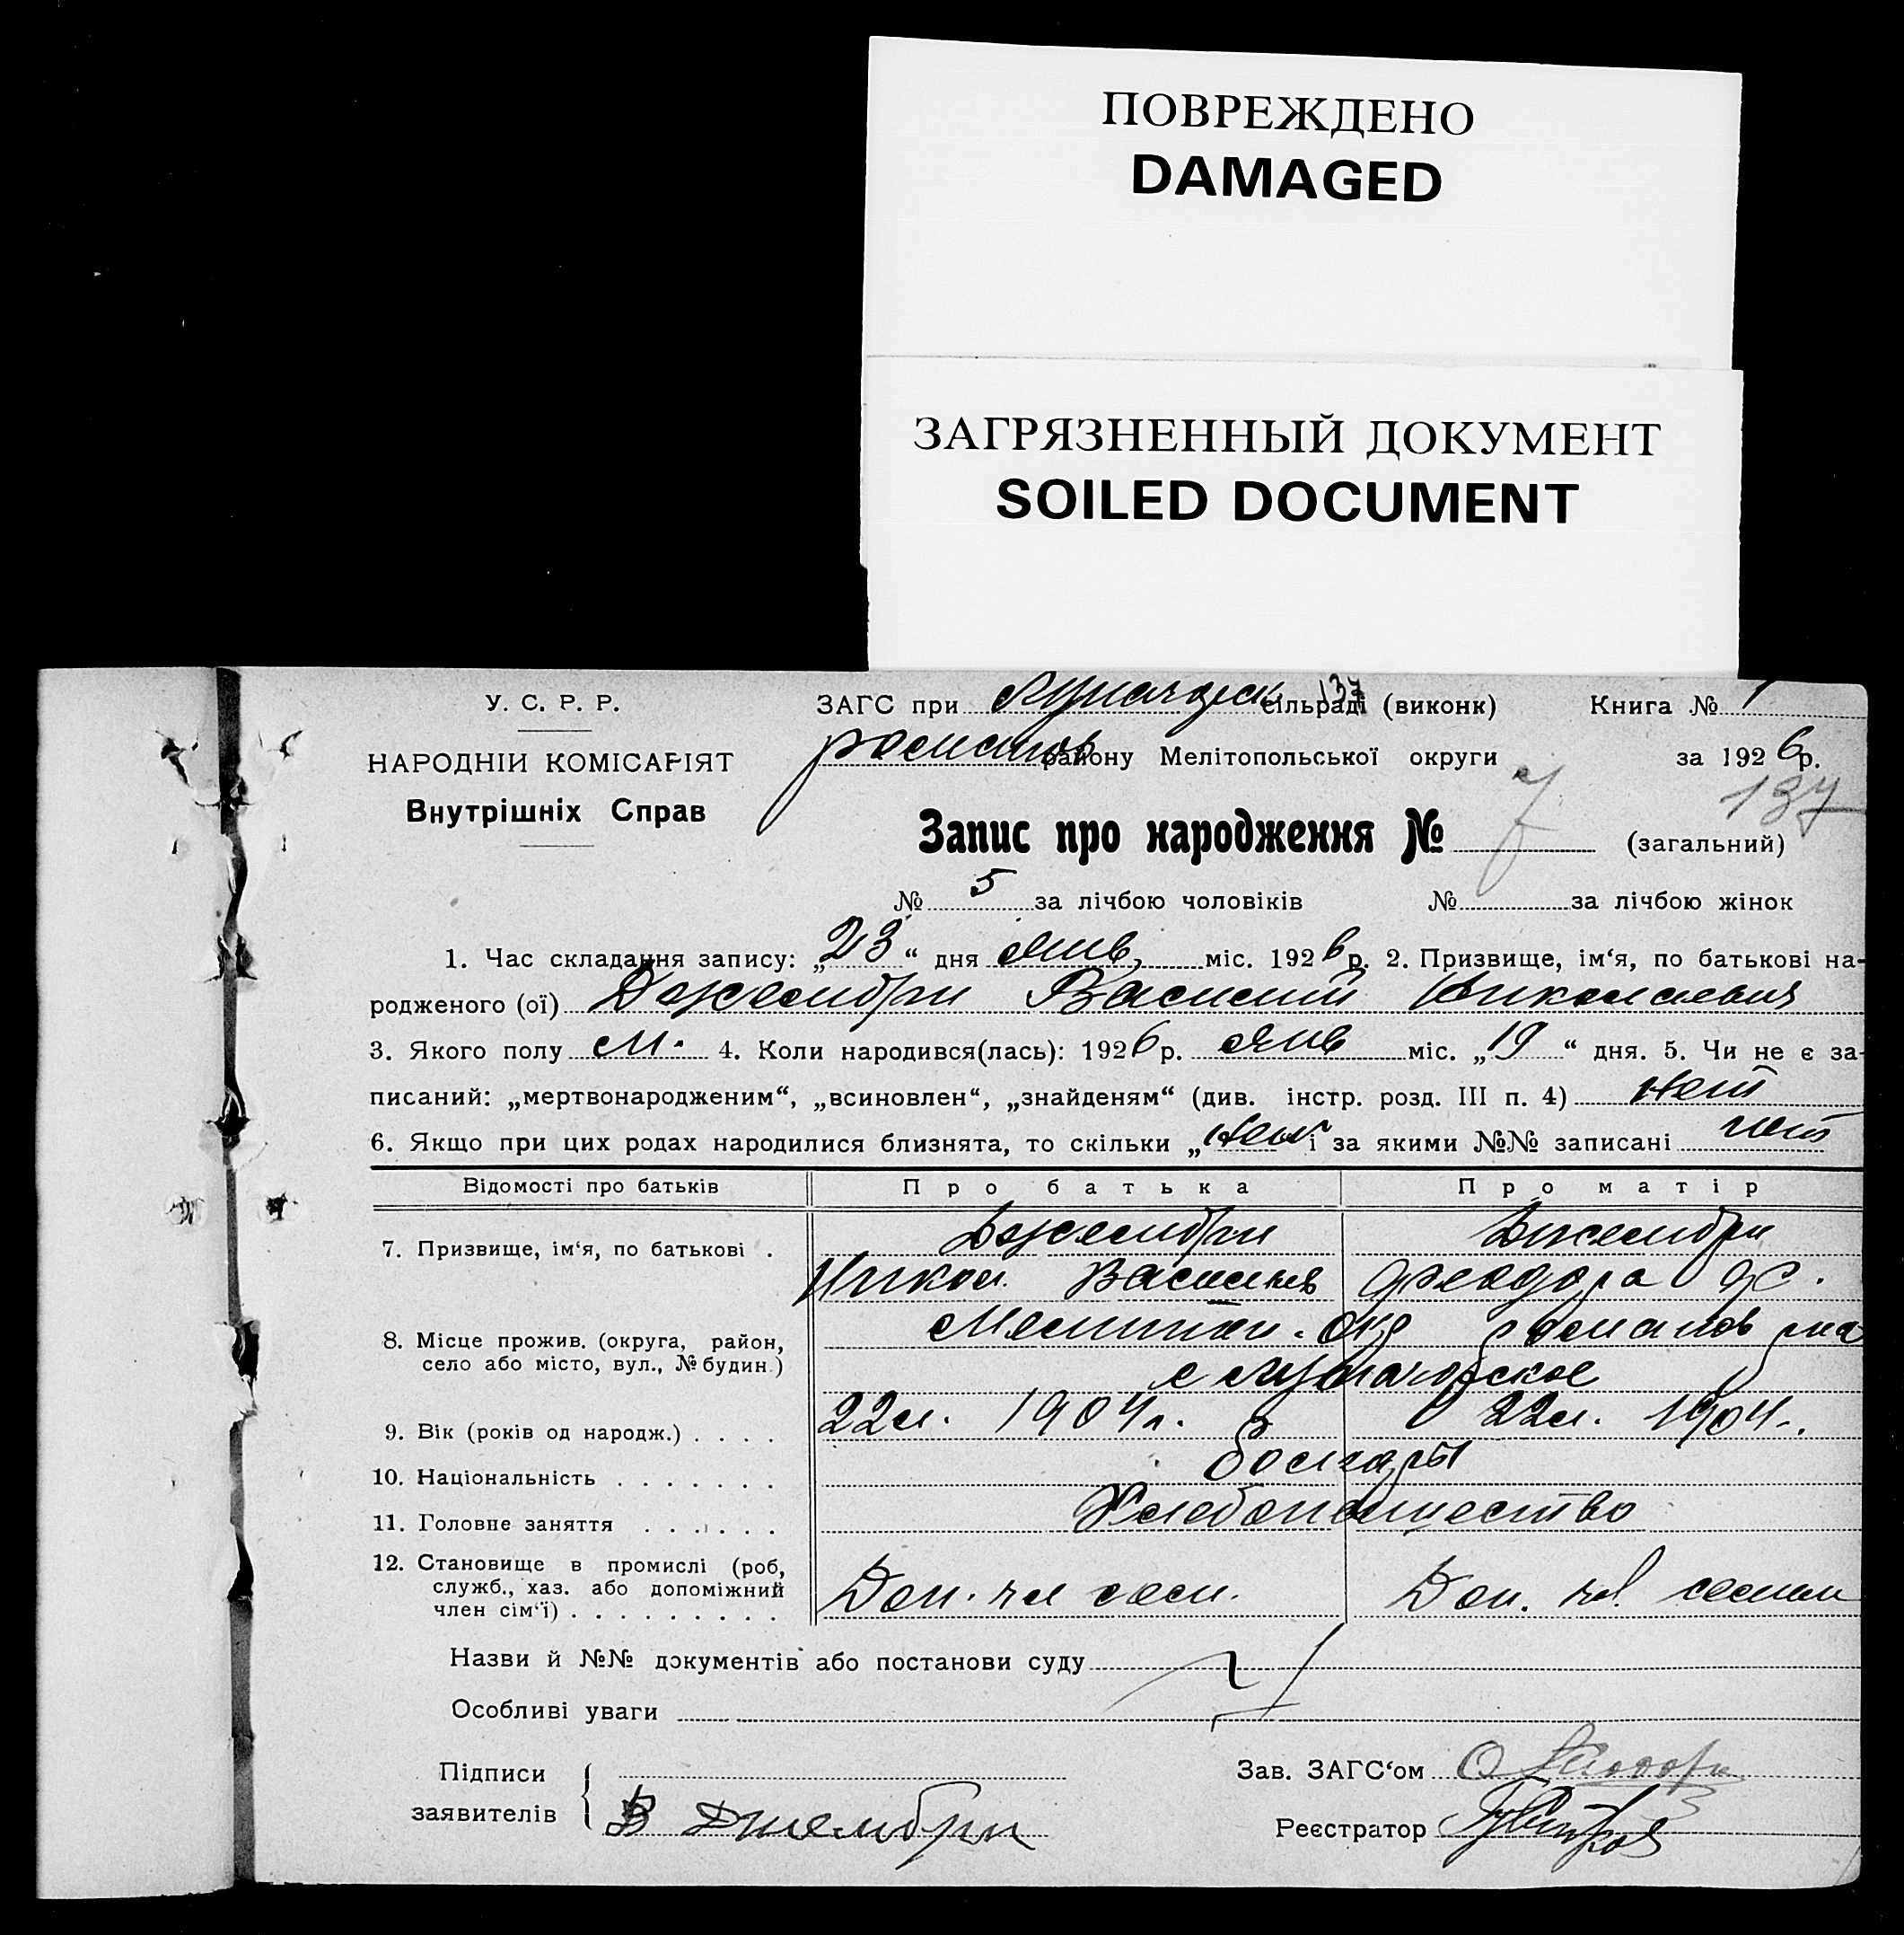 ПОВРЕЖДЕНО
DAMAGED
ЗАГРЯЗНЕННЫЙ ДОКУМЕНТ
SOILED DOCUMENT
У. С. Р. Р.
НАРОДНІЙ КОМІСАРІЯТ
Внутрішніх Справ
ЗАГС при сільраді (виконк) Книга № 1
137
району Мелітопольської округи за 1926 р.
137
Запис про народження № 7 (загальний)
№ 5 за лічбою чоловіків № за лічбою жінок
1. Час складання запису: „23“ дня янв. міс. 1926 р. 2. Призвище, ім‘я, по батькові на-
родженого (ої) Джембри Василий Николаевич
3. Якого полу М. 4. Коли народився(лась): 1926 р. Янв міс. „19“ дня. 5. Чи не є за-
писаний: „мертвонародженим“, „всиновлен“, „знайденям“ (див. інстр. розд. III п. 4) нет
6. Якщо при цих родах народилися близнята, то скільки „нет і за якими №№ записані нет
Відомості про батьків Про батька Про матір
7. Призвище, ім‘я, по батькові . Джембри Джембри
Никол. Васильев Феодора
8. Місце прожив. (округа, район, село або місто, вул., № будин.) Мелитоп. окр романов
с
9. Вік (років од народж.) . . . . 22л. 1904г. 22л. 1904г.
10. Національність . . . . . . . болгары
11. Головне заняття . . . . . . Хлебопашество
12. Становище в промислі (роб, служб., хаз. або допоміжний член сім‘ї) . . . . . . . . . Доп. чл сем. Доп. чл. семьи
Назви й №№ документів або постанови суду
Особливі уваги
Підписи заявителів В Джембри
Зав. ЗАГС‘ом
Реєстратор